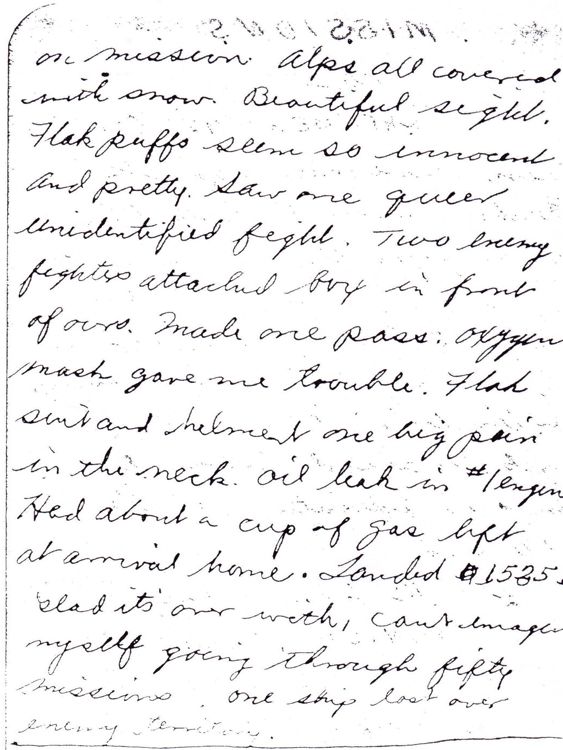 MISSIONS
on mission. Alps all covered
with snow. Beautiful sight.
Flak puffs seem so innocent
and pretty. Saw one queer
unidentified fight. Two enemy
fighters attacked box in front
of ours. Made one pass. Oxygen
mask gave me trouble. Flak
suit and helment one big pain
in the neck. Oil leak in #1 engin
Had about a cup of gas left
at arrival home. Landed @ 1535.
Glad it's over with, can't imagen
myself going through fifty
missions. One ship lost over
enemy territory.